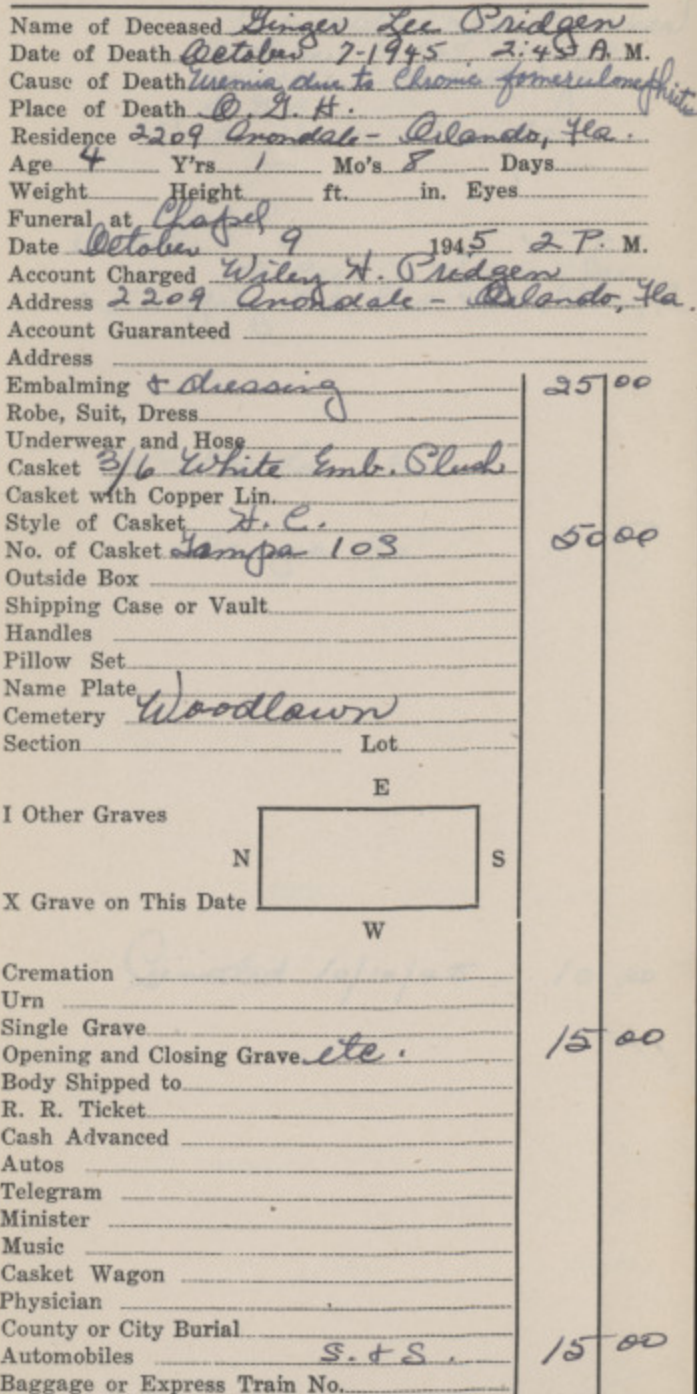 Name of Deceased Ginger Lee Pridgen
Date of Death October 7-1945 2:45 A. M.
Cause of Death Uremia due to Chronic fomerulonephritis
Place of Death O. G. H.
Residence 2209 Avondale - Orlando, Fla.
Age 4 Y'rs 1 Mo's 8 Days
Weight Height ft. in. Eyes
Funeral at Chapel
Date October 9 1945 2 P. M.
Account Charged Wiley H. Pridgen
Address 2209 Avondale - Orlando, Fla.
Account Guaranteed
Address
Embalming & dressing 25 00
Robe, Suit, Dress
Underwear and Hose
Casket 3/6 White Emb. Plush
Casket with Copper Lin.
Style of Casket H. C.
No. of Casket Tampa 103 50 00
Outside Box
Shipping Case or Vault
Handles
Pillow Set
Name Plate
Cemetery Woodlawn
Section Lot
E
I Other Graves
N S
X Grave on This Date
W
Cremation
Urn
Single Grave
Opening and Closing Grave etc. 15 00
Body Shipped to
R. R. Ticket
Cash Advanced
Autos
Telegram
Minister
Music
Casket Wagon
Physician
County or City Burial
Automobiles S. & S. 15 00
Baggage or Express Train No.